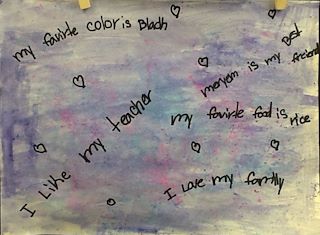 my favirde color is Bladh
meryem is my Best
freiend
my favirde food is rice
I Like my teacher
I Love my familly